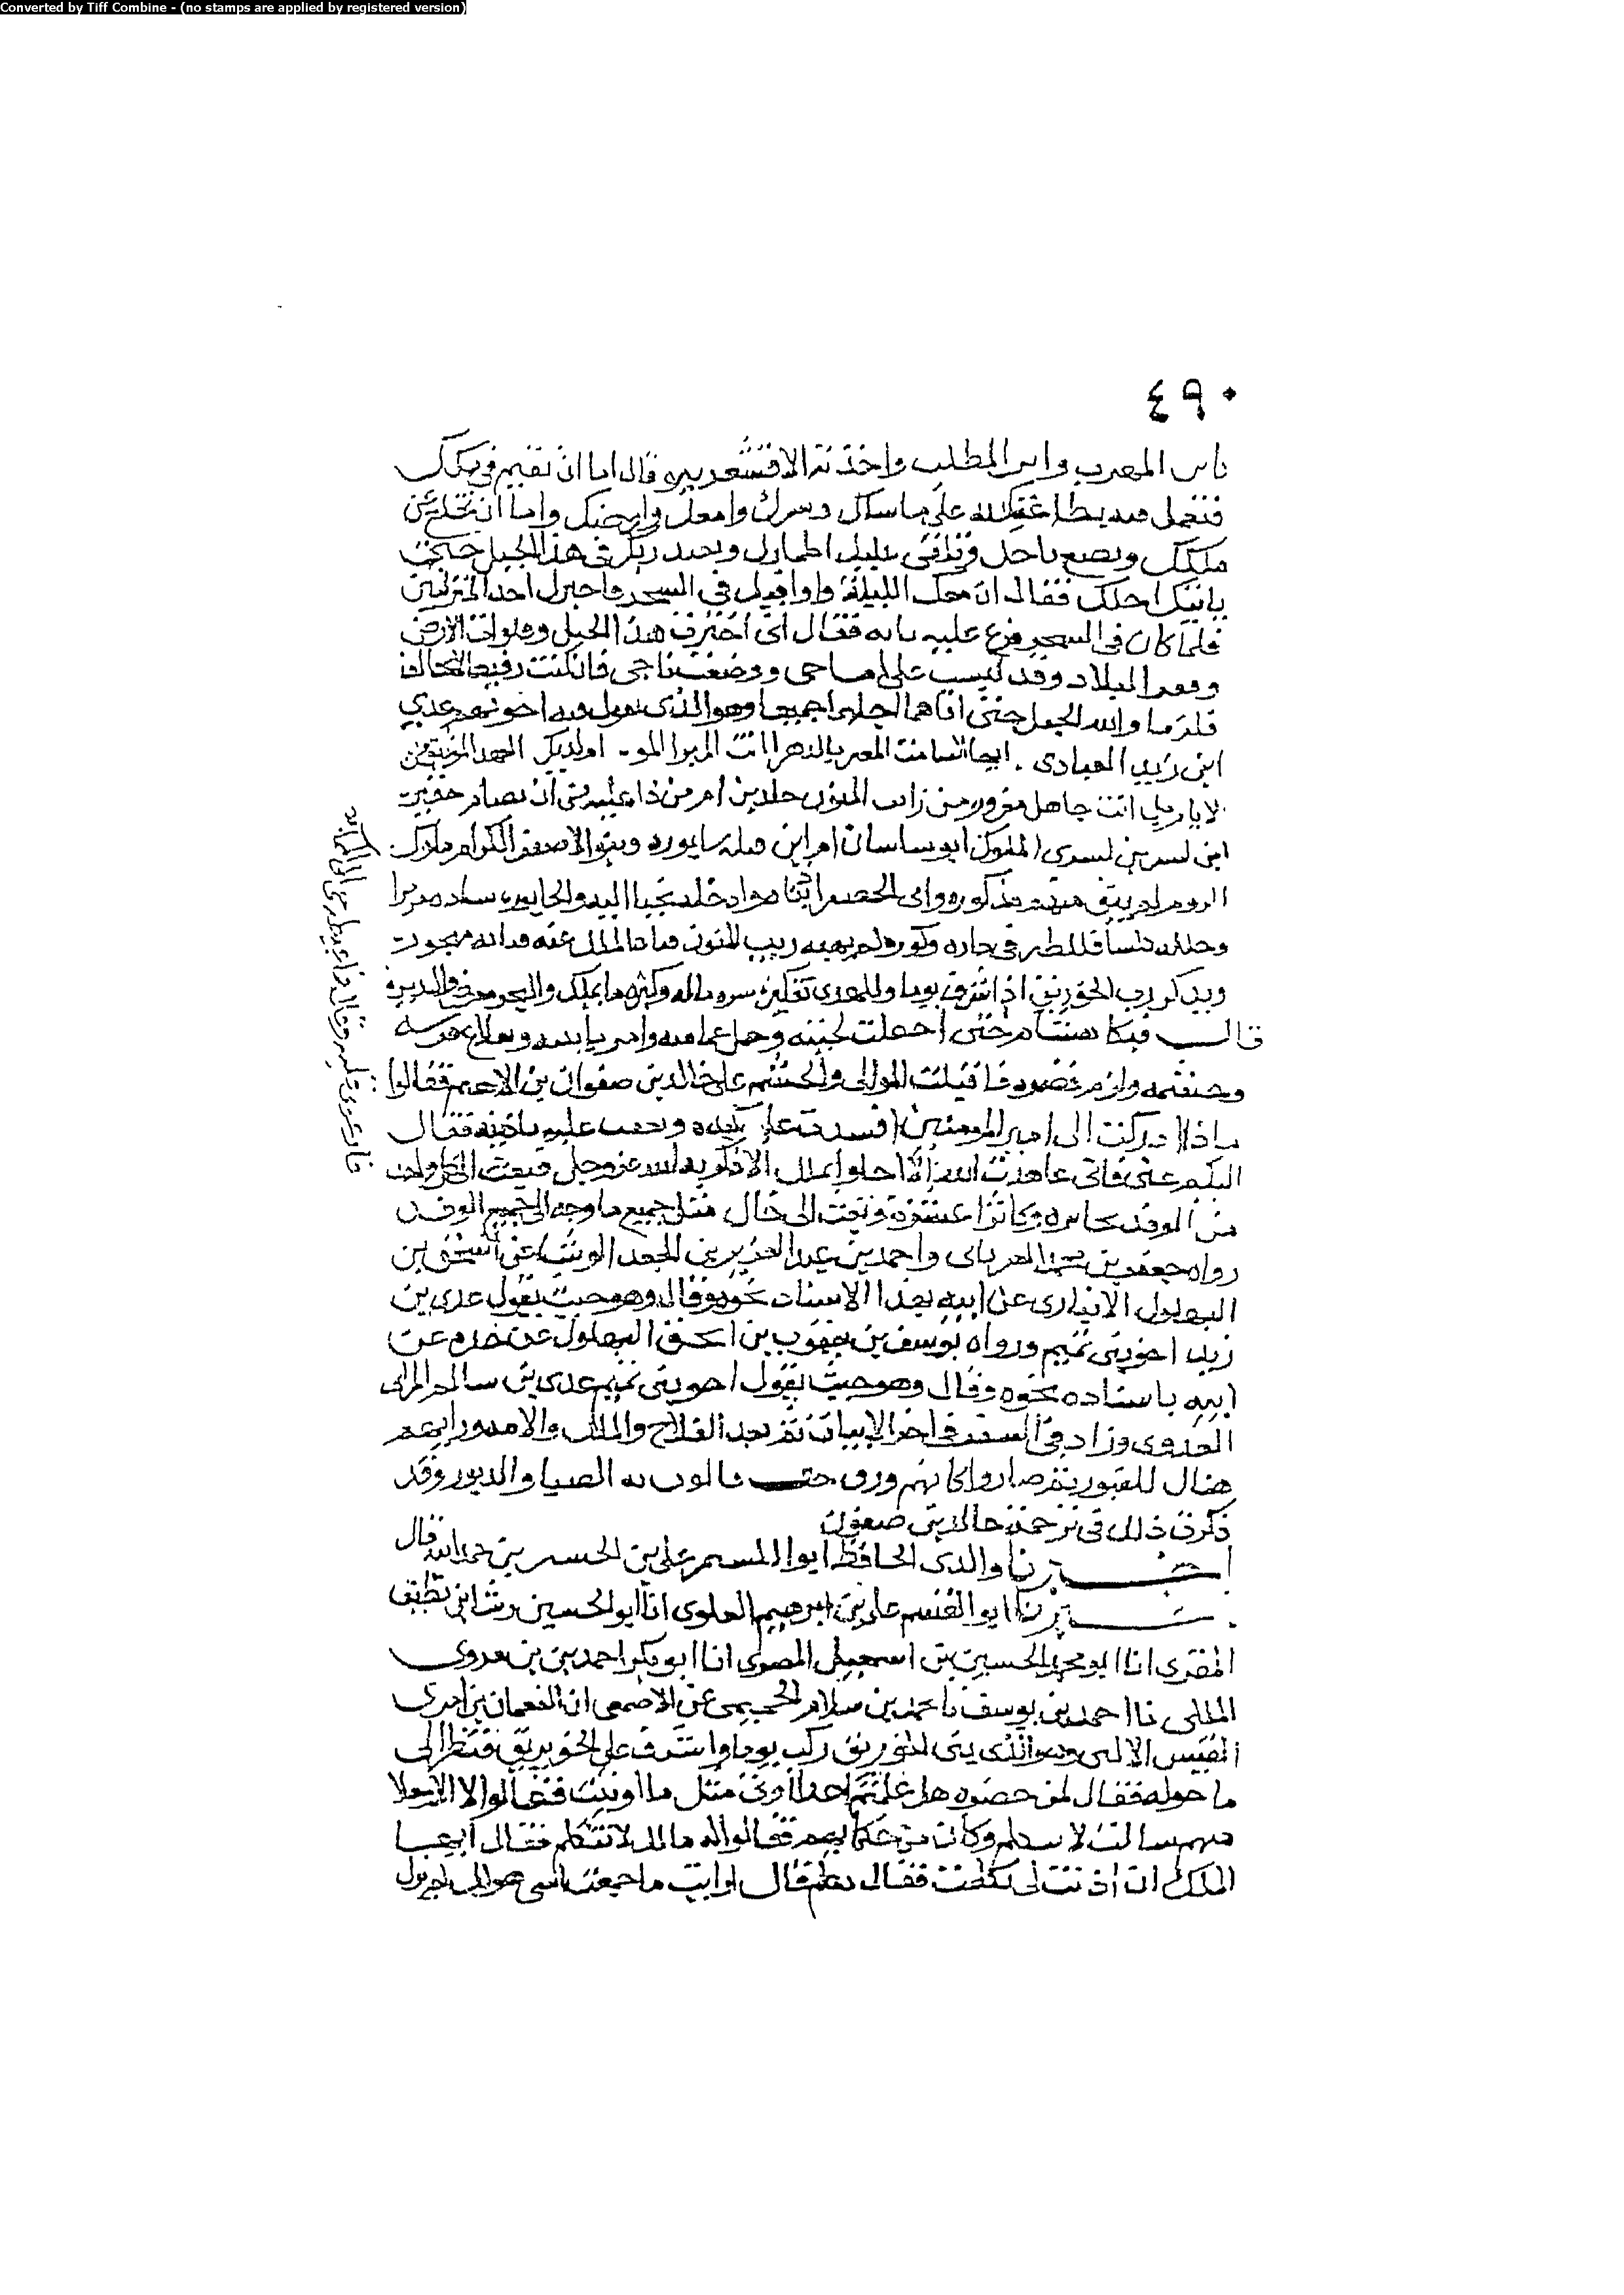 Converted by Tiff Combine - (no stamps are applied by registered version)
٤٩٠
المهرب واين المطلب واخذته قال اما ان تقيم في ملكك
فتعمل فيه بطاعة الله على ما ساءك وسرك وامضك وارمضك واما ان تنخلع من
ملكك وتضع تاجك وتلقي عليك اطمارك وتعبد ربك في هذا الجبل حتى
ياتيك اجلك فقال اني السحر فاخبرك احد المنزلتين
فلما كان في السحر قرع عليه بابه فقال اني اخترت هذا الجبل وفلوات الارض
وقفر البلاد وقد لبست على امساحي ووضعت تاجي فان كنت رفيقا لا تخالف
فلزما والله الجبل حتى اتاهما اجلهما جميعا وهو الذي يقول فيه اخو تميم عدي
ابن زيد العبادي . ايها الشامت المعير بالدهر اانت المبرا المو - ام لديك العهد الوثيق من
الايام بل انت جاهل مغرور من رايت المنون خلدن ام من ذا عليه من ان يضام خفير
اين كسرى كسرى الملوك ابو ساسان ام اين قبله سابور وبنو الاصفر الكرام ملوك
الروم لم يبق منهم مذكور واخو الحضر اذ بناه واذ دجلة تجبا اليه والخابور شاده مرمرا
وجلله كلسا فللطير في ذراه وكور لم يهبه ريب المنون فباد الملك عنه فبابه مهجور
وتذكر رب الخورنق اذ اشرف يوما وللهدى تفكير سره ماله وكثرة ما يملك والبحر معرض والسدير
قال فبكا هشام حتى اخضلت لحيته وبل عمامته وامر
وحشمه ولزم قصره فاقبلت الموالي والحشم على خالد بن صفوان بن الاهتم فقالوا
ماذا اردت الى امير المومنين افسدت عليه لذته فقال
اليكم عني فاني عاهدت الله الا اخلو بملك الا ذكرته الله عز وجل فبعث الى كل واحد
من الوفد بجائزه وكانوا عشرة وبعث الى خالد مثل جميع ما وجه الى جميع الوفد
رواه جعفر بن واحمد بن عبد العزيز بن الجعد الوشا عن اسحق بن
البهلول الانباري عن ابيه بهذا الاسناد نحوه وقال وهو حيث يقول عدي بن
زيد اخو بني تميم ورواه يوسف بن يعقوب بن اسحق البهلول عن جده عن
ابيه باسناده نحوه وقال وهو حيث يقول اخو بني تميم عدي بن سالم المرائي
العدوي وزاد في الشعر في اخر الابيات ثم بعد الفلاح والملك والامة وارتهم
هناك القبور ثم صاروا كانهم ورق جف فالوت به الصبا والدبور وقد
ذكرت ذلك في ترجمة خالد بن صفوان
اخبرنا والدي الحافظ ابو القسم علي بن الحسن رحمه الله قال
اخبرنا ابو القسم علي بن ابرهيم العلوي انا ابو الحسين رشا بن نظيف
المقرى انا ابو محمد الحسين بن اسمعيل المصري انا ابو بكر احمد بن مروان
المالكي نا احمد بن يوسف نا محمد بن سلام الجمحي عن الاصمعي ان النعمان بن امرئ
القيس الاكبر وهو الذي بنى الخورنق ركب يوما واشرف على الخورنق فنظر الى
ما حوله فقال لمن حضره هل علمتم احدا اوتي مثل ما اوتيت فقالوا لا الا رجلا
منهم ساكت لا يتكلم وكان من حكمايهم فقالوا له ما لك لا تتكلم فقال ايها
الملك ان اذنت لي تكلمت فقال تكلم قال ارايت ما جمعت اشيء هو لك لم يزل